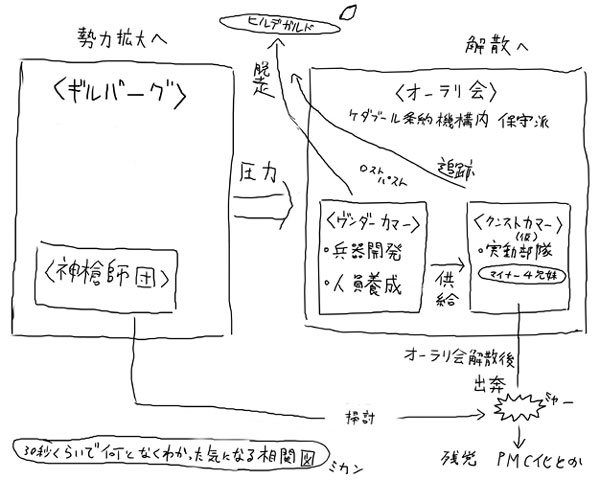 ヒルデガルド
勢力拡大へ
解散へ
〈ギルバーグ〉
脱走
〈オーラリ会〉
ケダブール条約機構内 保守派
圧力
ロストパスト
追跡
〈ヴンダーカマー〉
・兵器開発
・人員養成
供給
〈クンストカマー〉
(仮)
・実動部隊
マイナー4兄妹
〈神槍師団〉
オーラリ会解散後
出奔
ミャー
掃討
残党 PMC化とか
30秒くらいで何となくわかった気になる相関図
ミカン